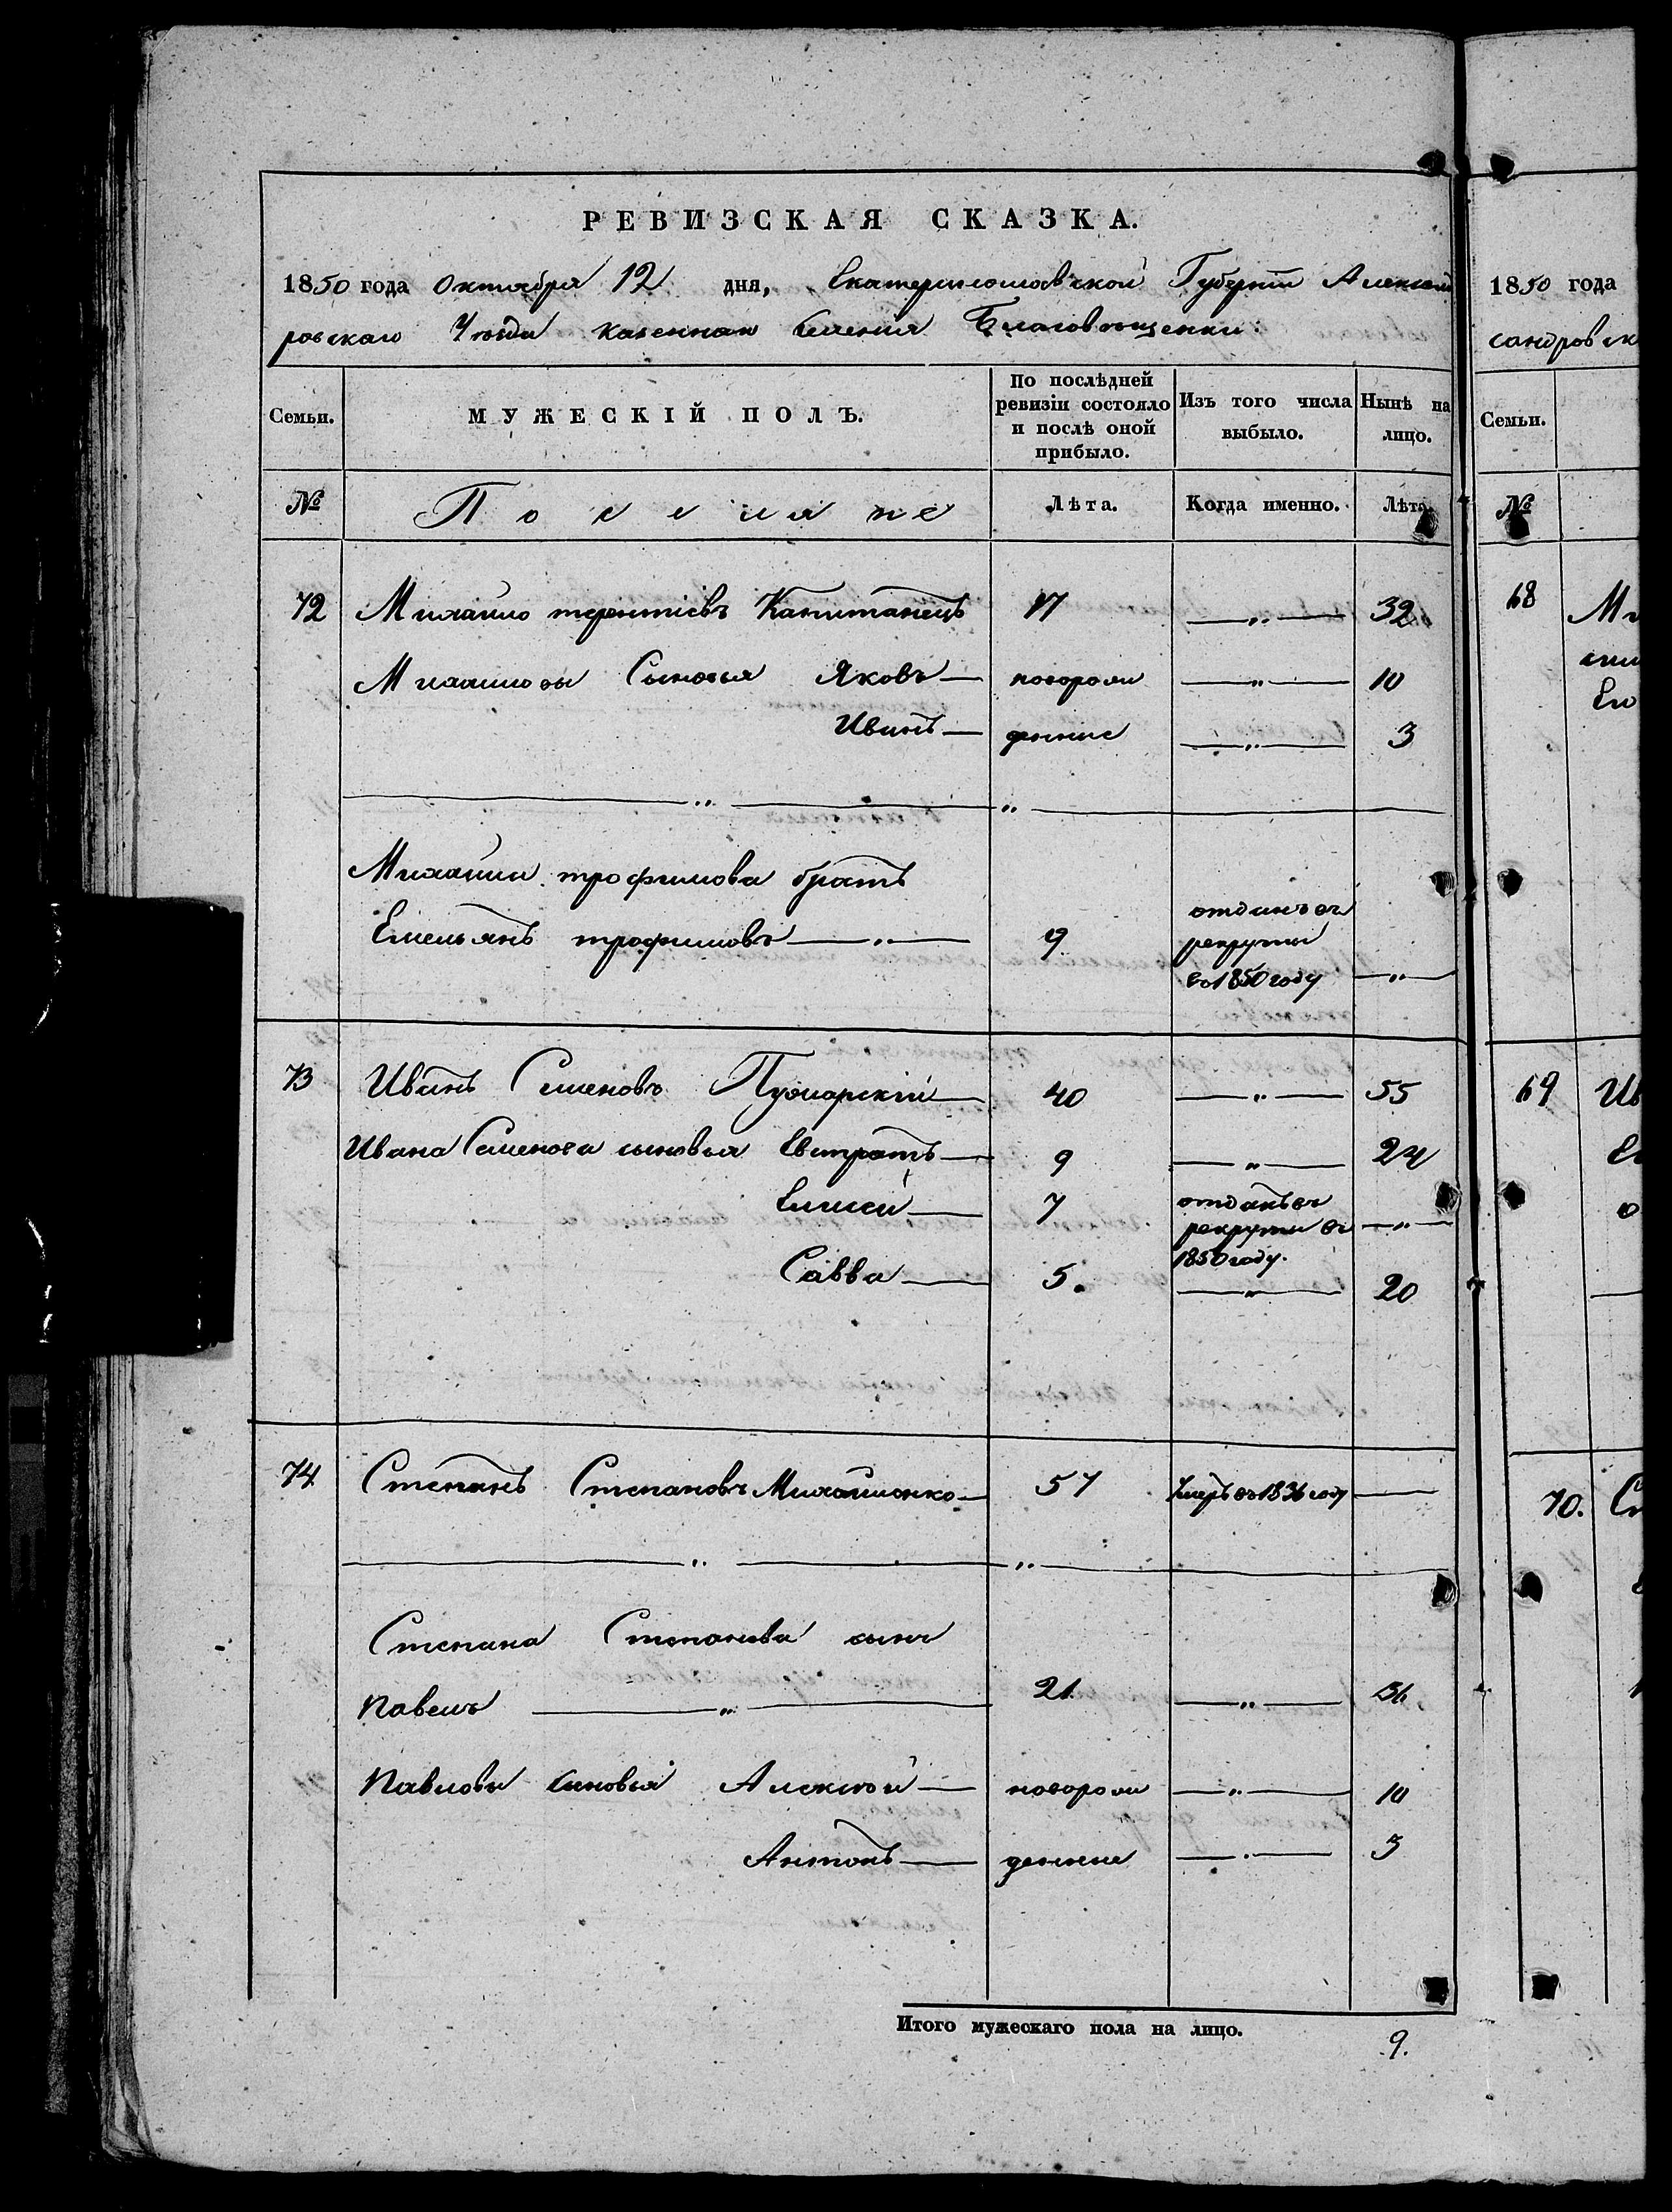 РЕВИЗСКАЯ СКАЗКА.
1850 года Октября 12 дня, Екатеринославской Губерніи Александ
ровскаго Уѣзда казеннаго селенія Благовѣщенки.
Семьи. МУЖЕСКІЙ ПОЛЪ. По послѣдней ревизіи состояло и послѣ оной прибыло. Изъ того числа выбыло. Нынѣ на лицо.
№ Поселяне Лѣта. Когда именно. Лѣта.
72 Михайло терентіевъ Капитанецъ 17 —„— 32
Михайловы Сыновья Яковъ — новорож —„— 10
Иванъ — денные —„— 3
Михайлы трофимова братъ
Емельянъ трофимовъ —„— 9 отданъ въ
рекруты
въ 1850 году —„—
73 Иванъ Семеновъ 40 —„— 55
Ивана Семенова сыновья Евстратъ — 9 —„— 24
Елисей — 7 отданъ въ
рекруты въ —„—
1850 году.
Савва — 5. —„— 20
74 Степанъ Степановъ Михайленко — 57 Умеръ въ 1836 году —
Степана Степанова сынъ
Павелъ —„— 21 —„— 36
Павловы сыновья Алексѣй — новорож —„— 10
Антонъ — денные —„— 3
Итого мужескаго пола на лицо. 9.
1850 года
сандровск
Семьи.
№
68
69
70.